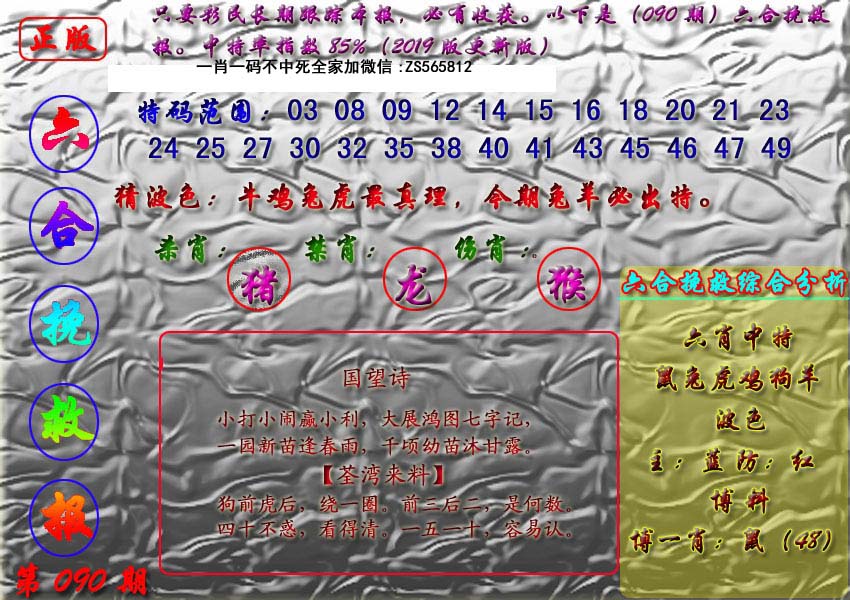 正版
只要彩民长期跟踪本报，必有收获。以下是（090期）六合挽救
报。中特率指数85%（2019版更新版）
一肖一码不中死全家加微信:ZS565812
特码范围：03 08 09 12 14 15 16 18 20 21 23
24 25 27 30 32 35 38 40 41 43 45 46 47 49
猜波色：牛鸡兔虎最真理，今期兔羊必出特。
杀肖：猪 禁肖：龙 伤肖：猴。
六合挽救报
第090期
国望诗
小打小闹赢小利，大展鸿图七字记，
一园新苗逢春雨，千顷幼苗沐甘露。
【荃湾来料】
狗前虎后，绕一圈。前三后二，是何数。
四十不惑，看得清。一五一十，容易认。
六合挽救综合分析
六肖中特
鼠兔虎鸡狗羊
波色
主：蓝防：红
博料
博一肖：鼠（48）